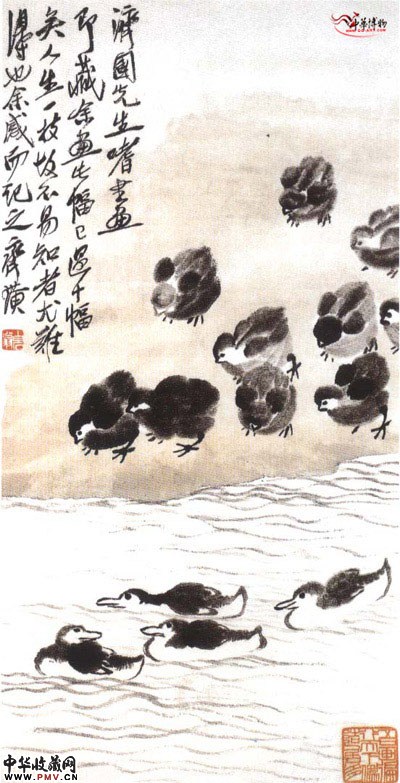 濟國先生嗜書畫
即藏余畫此幅已過十幅
矣人生一技故不易知者尤難
得也余感而記之齊璜
中華博物
中华收藏网
WWW.PMV.CN